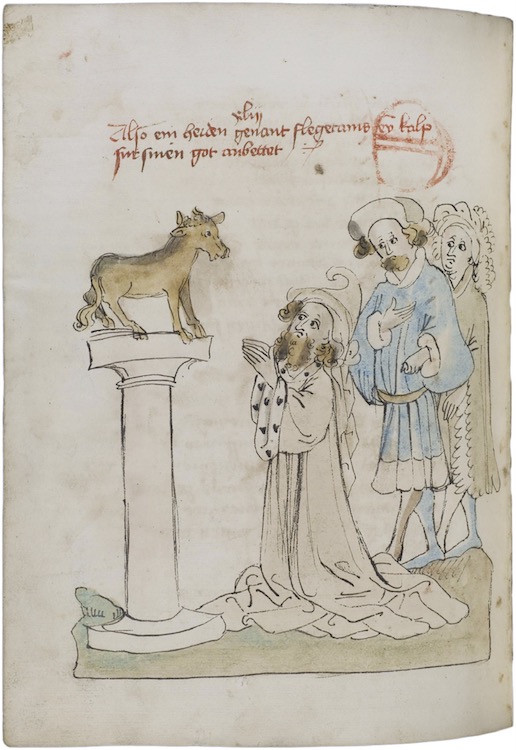 xliii
Also ein heiden genant flegetanis ein kalp
fur sinen got anbettet